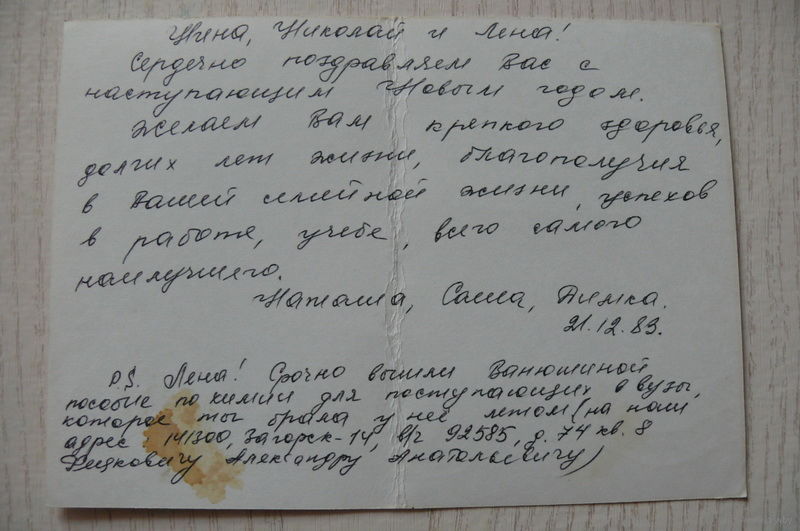 Нина, Николай и Лена!
Сердечно поздравляем Вас с
наступающим Новым годом.
Желаем Вам крепкого здоровья,
долгих лет жизни, благополучия
в Вашей семейной жизни, успехов
в работе, учебе, всего самого
наилучшего.
Наташа, Саша, Димка.
21.12.83.
P.S. Лена! Срочно вышли Ванюшиной
пособие по химии для поступающих в вузы,
которое ты брала у нее летом (на наш
адрес: 141300, Загорск-14, в/ч 92585, д. 74 кв. 8
Александру Анатольевичу)